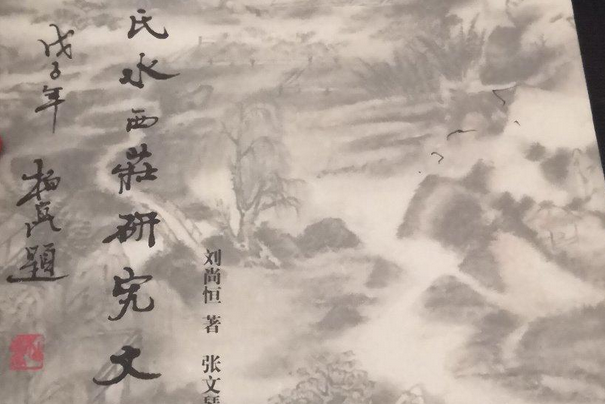 氏水西莊研究文
戊子年 楊 題
刘尚恒 著 张文